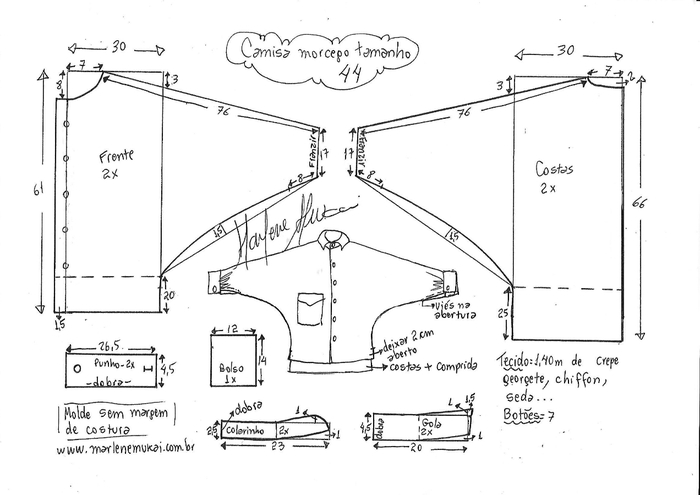 Camisa morcego tamanho
44
30
7
8
3
76
61
Frente
2x
Franzir
17
8
1,5
20
1,5
Marlene Mukai
30
7
2
3
76
Franzir
17
8
1,5
Costas
2x
66
25
viés na
abertura
deixar 2 cm
aberto
costas + comprida
26,5
Punho-2x
-dobra-
4,5
12
Bolso
1x
14
Tecido: 1,40m de crepe
georgete, chiffon,
seda...
Botões= 7
Molde sem margem
de costura
www.marlenemukai.com.br
dobra
1
2,5
colarinho 2x
1
23
1 1,5
4,5
dobra
Gola
2x
1
20